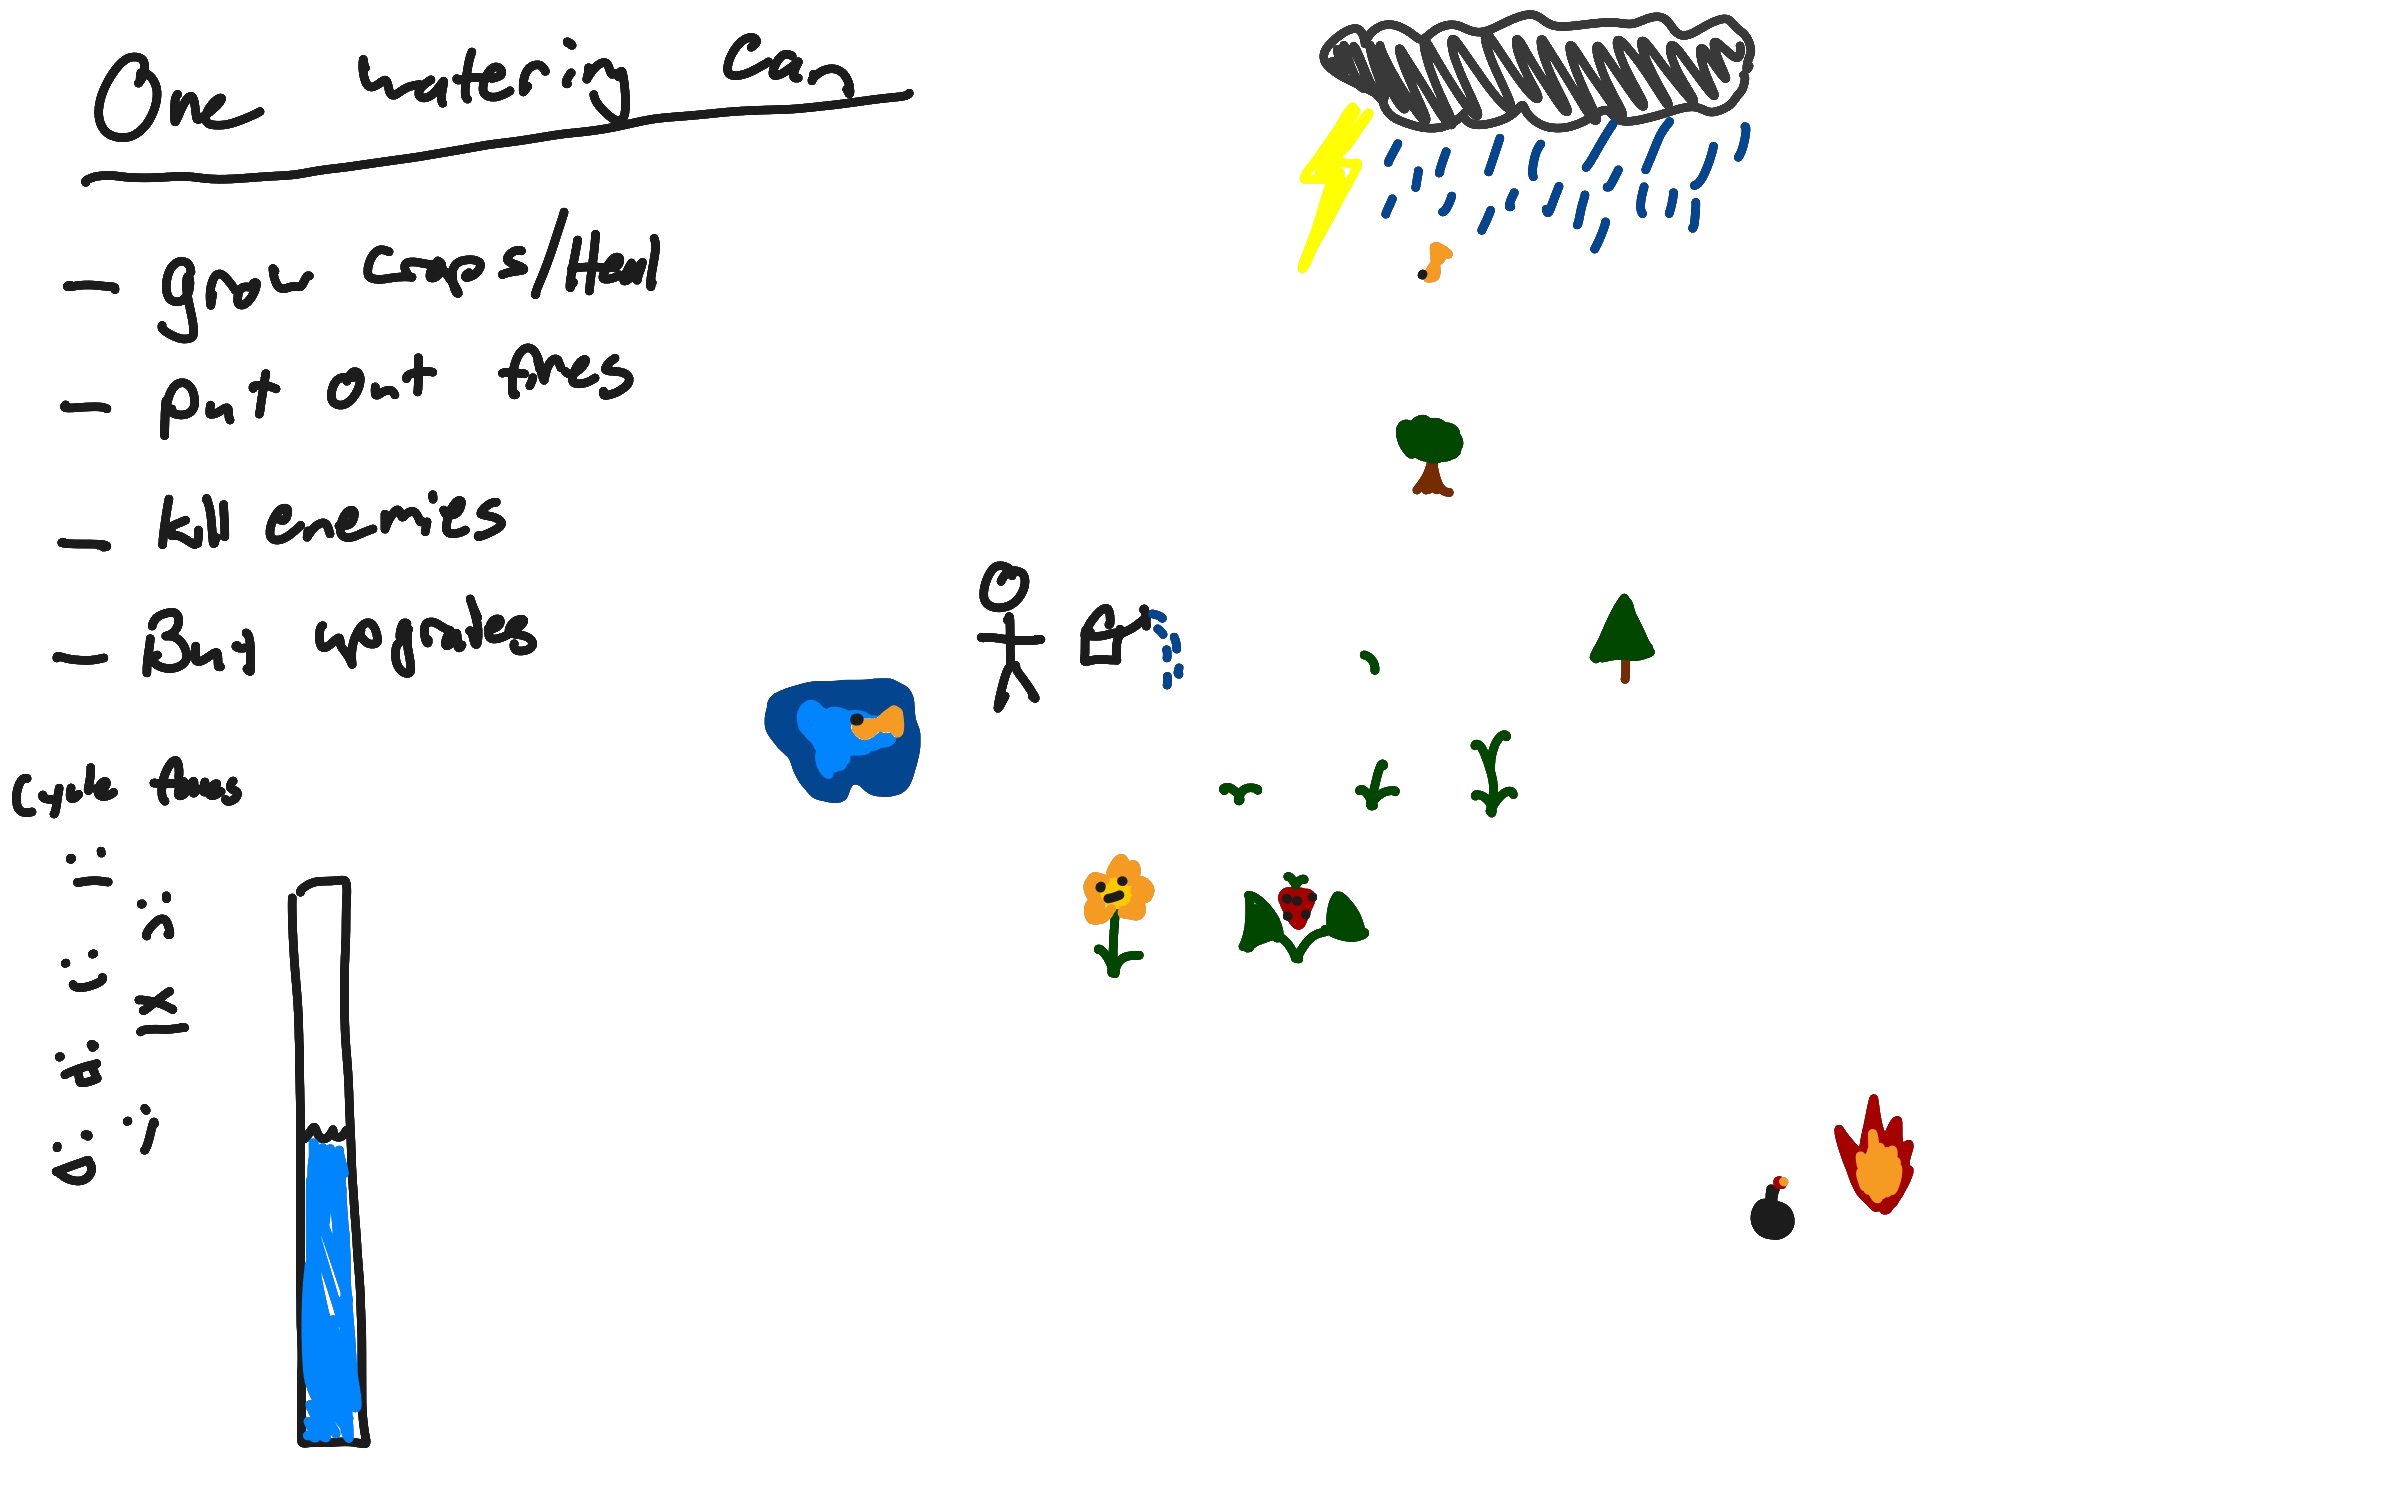 One watering Can
- grow crops/Heal
- put out fires
- kill enemies
- Buy upgrades
Cycle faces